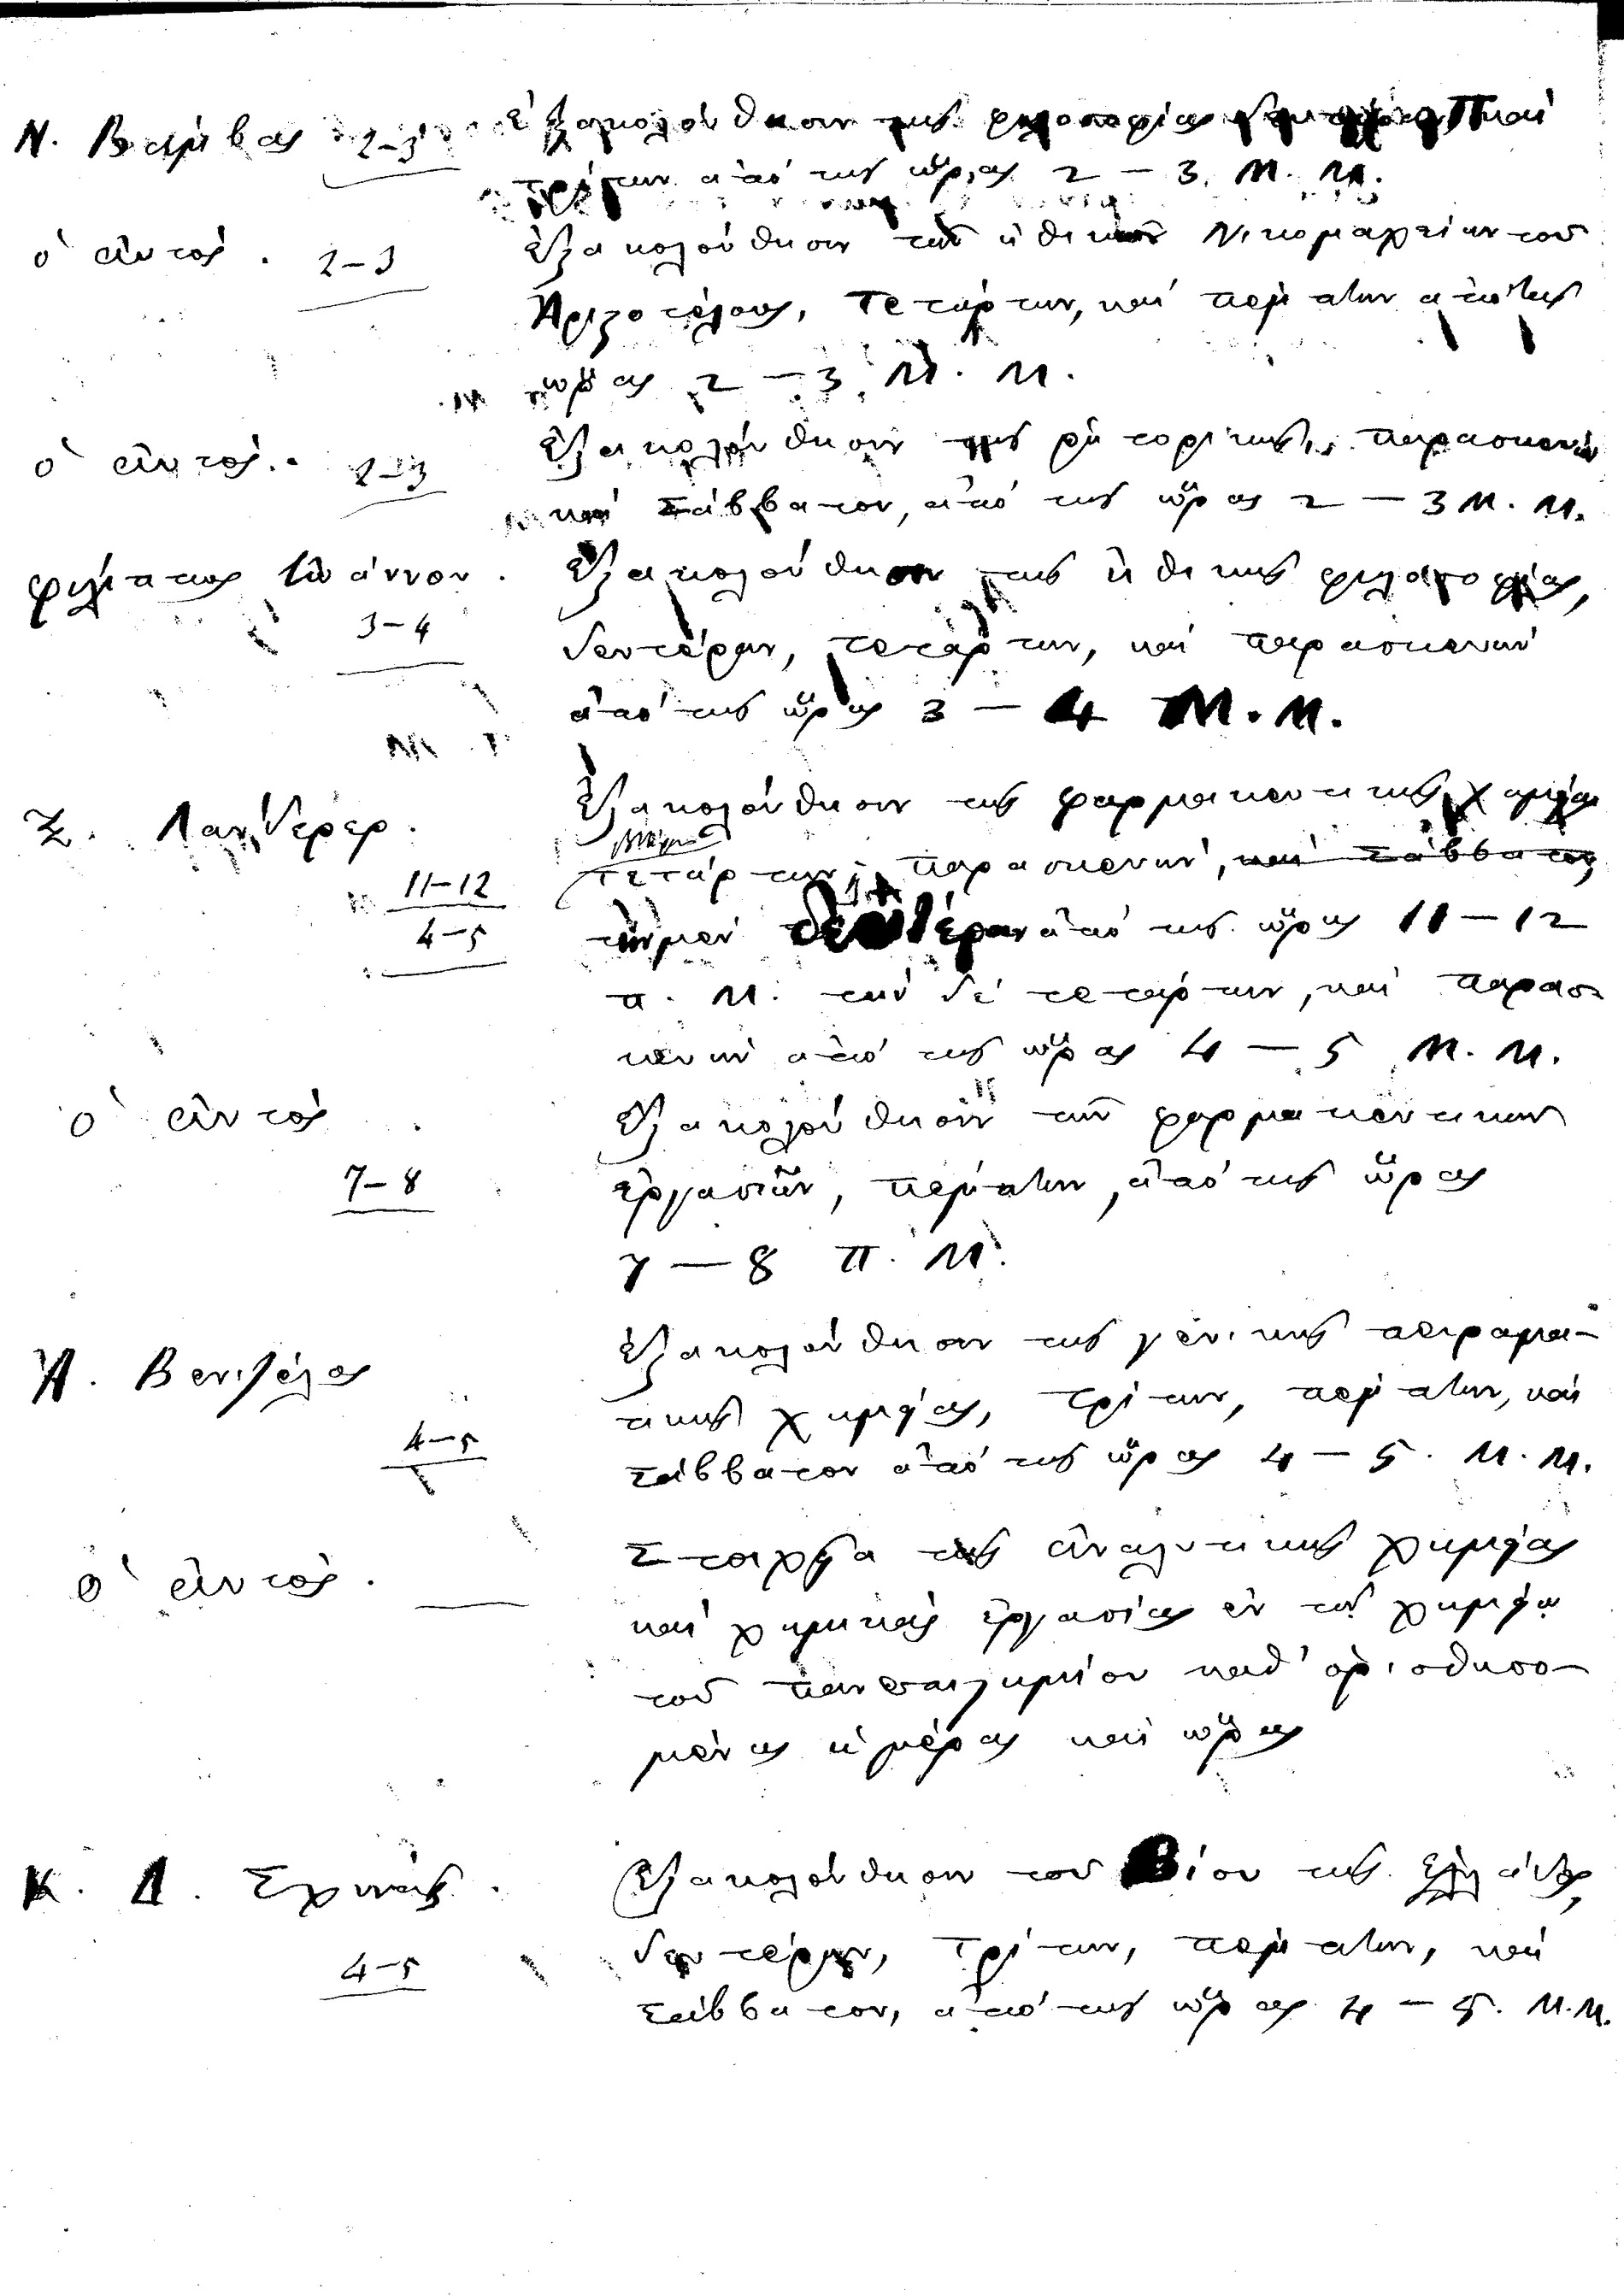 Ν. Βάμβας 2–3 ἐξακολούθησιν τῆς φιλοσοφίας δευτέραν καὶ
τρίτην ἀπὸ τῆς ὥρας 2 – 3. Μ. Μ.
ὁ αὐτός. 2–3 ἐξακολούθησιν τῶν ἠθικῶν Νικομαχείων τοῦ
Ἀριστοτέλους, Τετάρτην, καὶ πέμπτην ἀπὸ τῆς
ὥρας 2 – 3, Μ. Μ.
ὁ αὐτός. 2–3 ἐξακολούθησιν τῆς ῥητορικῆς, παρασκευὴν
καὶ Σάββατον, ἀπὸ τῆς ὥρας 2 – 3 Μ. Μ.
φιλιππος Ἰωάννου. ἐξακολούθησιν τῆς ἠθικῆς φιλοσοφίας,
3–4 δευτέραν, τετάρτην, καὶ παρασκευὴν
ἀπὸ τῆς ὥρας 3 – 4 Μ. Μ.
Ξ. Λάνδερερ. ἐξακολούθησιν τῆς φαρμακευτικῆς χημείας
τετάρτην, παρασκευὴν, καὶ σάββατον,
11–12 τὴν μὲν δευτέραν ἀπὸ τῆς ὥρας 11 – 12
4–5
π. Μ. τὴν δὲ τετάρτην, καὶ παρασ
κευὴν ἀπὸ τῆς ὥρας 4 – 5 Μ. Μ.
ὁ αὐτός. ἐξακολούθησιν τῶν φαρμακευτικῶν
7–8 ἐργασιῶν, πέμπτην, ἀπὸ τῆς ὥρας
7 – 8 π. Μ.
Ἀ. Βενιζέλος ἐξακολούθησιν τῆς γενικῆς πειραμα–
τικῆς χημείας, τρίτην, πέμπτην, καὶ
4–5 σάββατον ἀπὸ τῆς ὥρας 4 – 5. Μ. Μ.
ὁ αὐτός. Στοιχεῖα τῆς ἀναλυτικῆς χημείας
καὶ χημικὰς ἐργασίας ἐν τῷ χημείῳ
τοῦ πανεπιστημίου καθ' ὁρισθησο–
μένας ἡμέρας καὶ ὥρας
Κ. Δ. Σχινᾶς. ἐξακολούθησιν τοῦ Βίου τῆς Ἑλλάδος,
4–5 δευτέραν, τρίτην, πέμπτην, καὶ
σάββατον, ἀπὸ τῆς ὥρας 4 – 5. Μ. Μ.